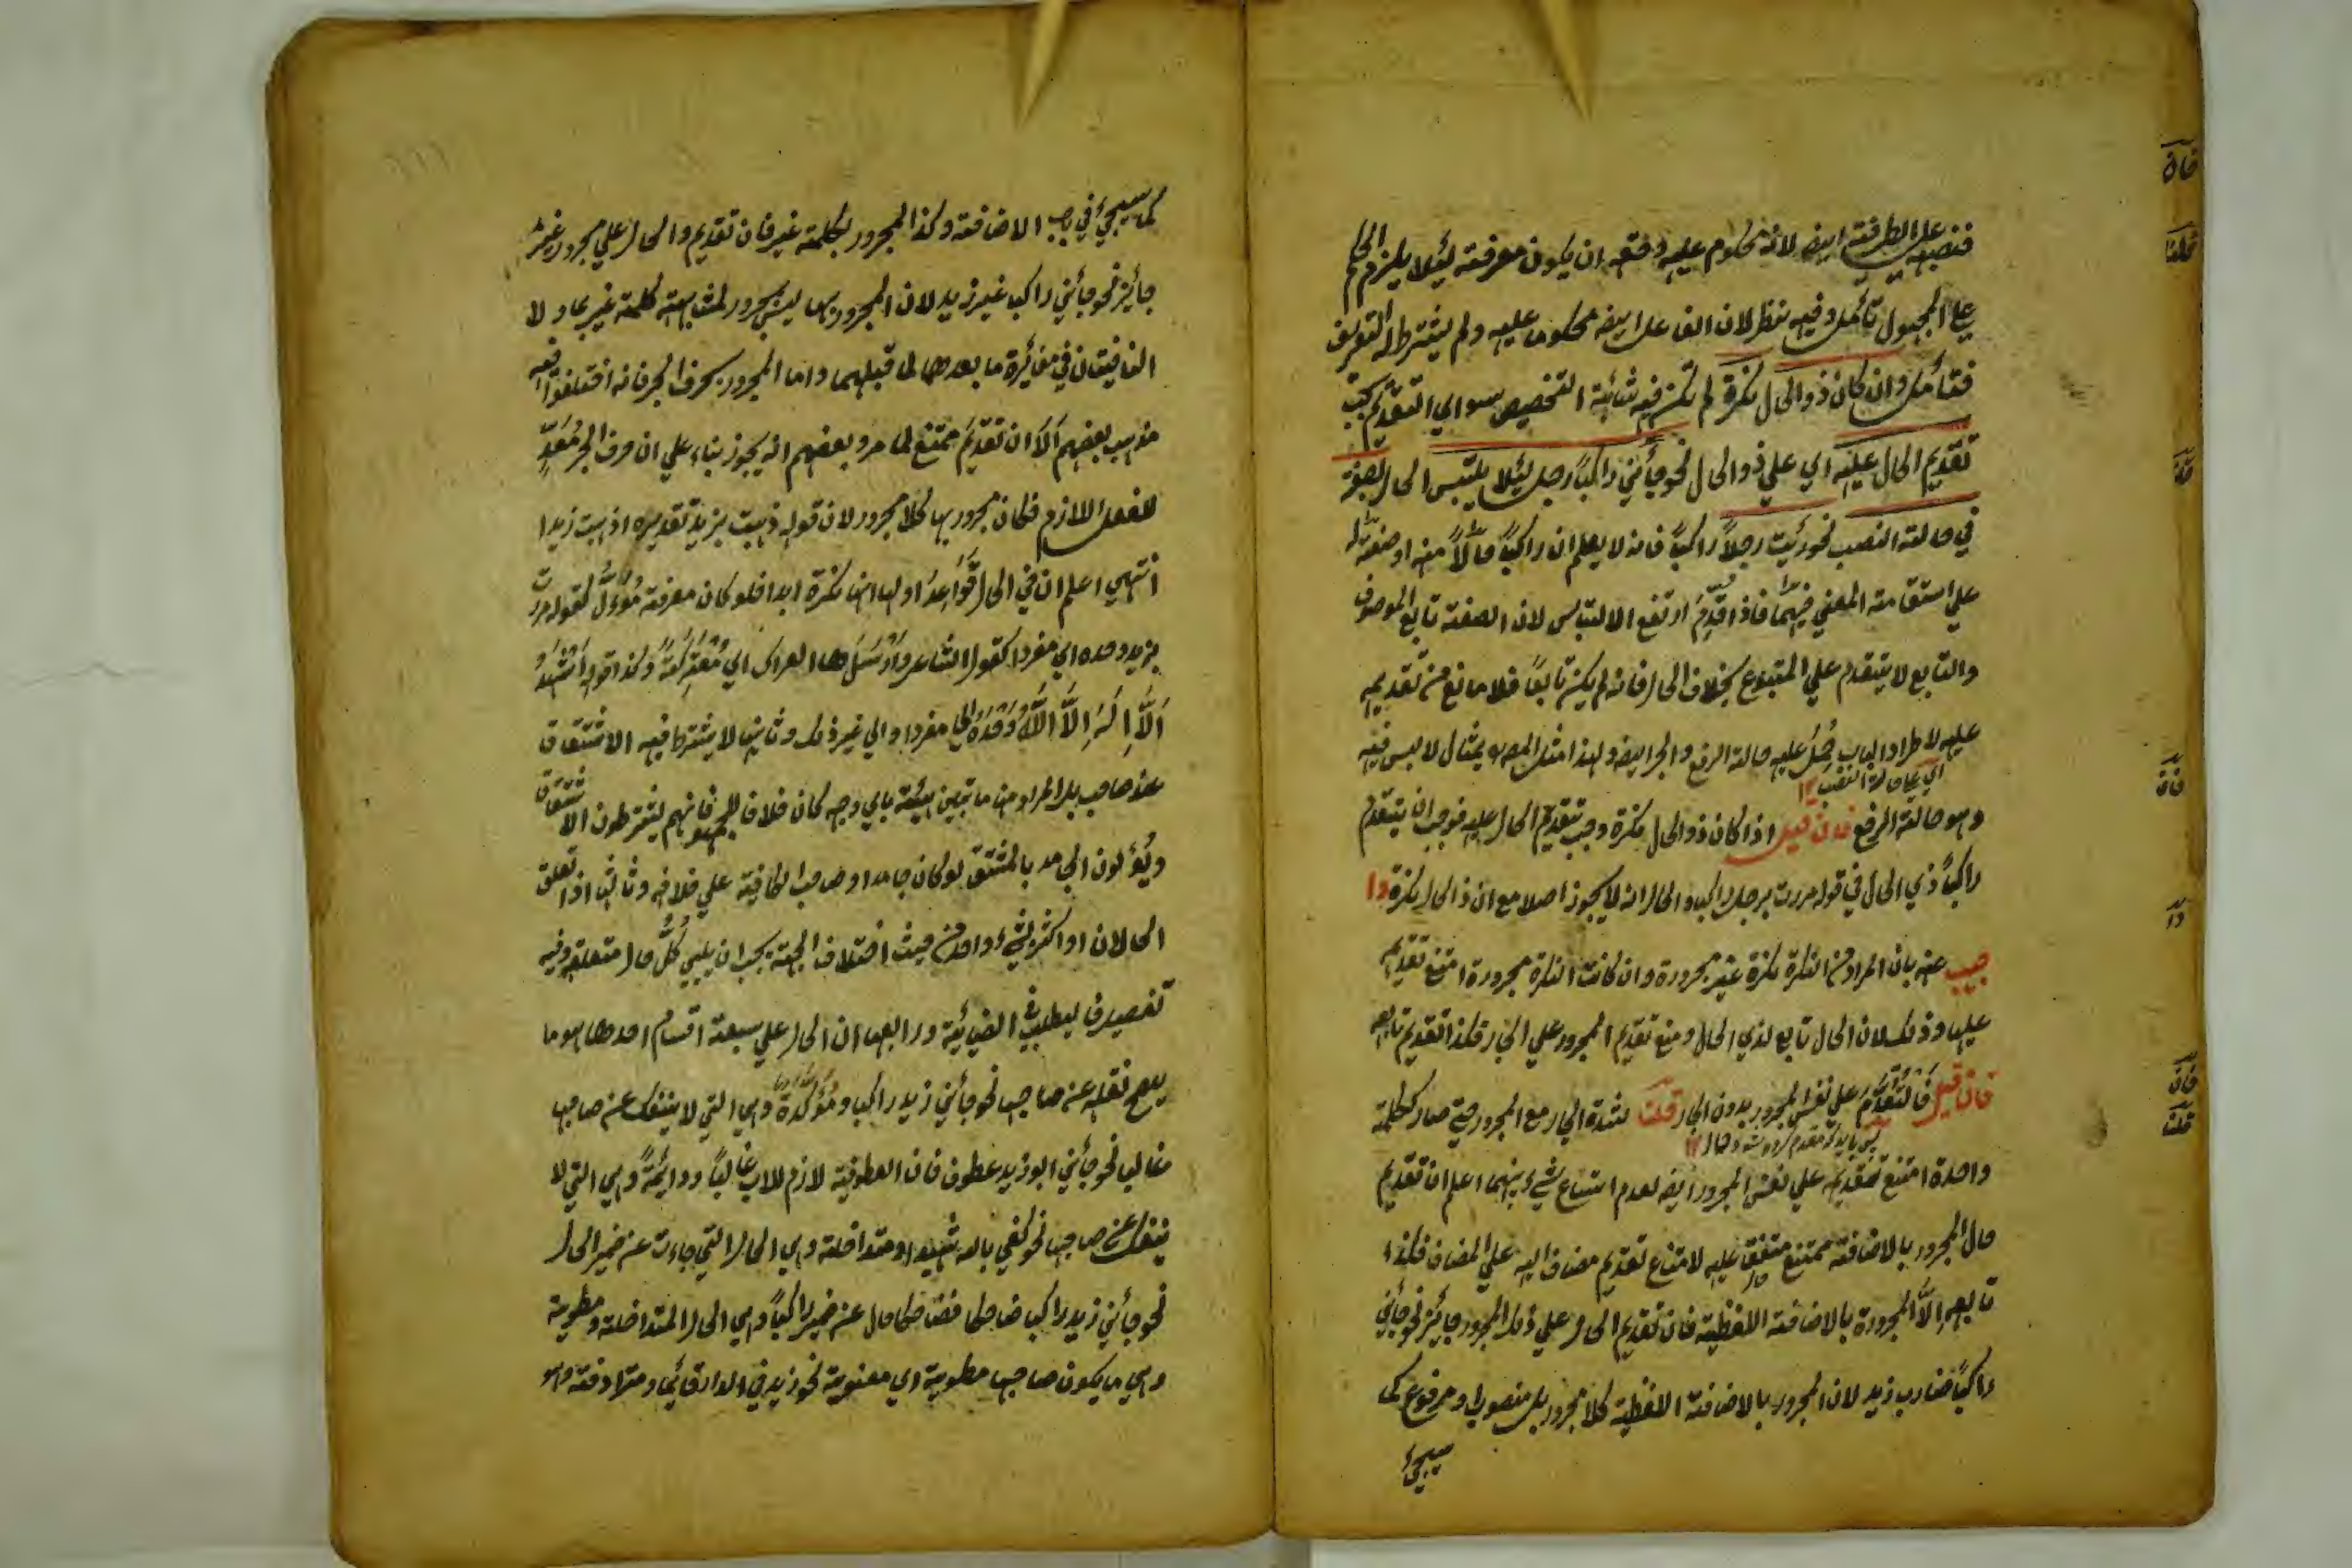 فنصبه علي الظرفية ايضه لانه محكوم عليه وحقه ان يكون معرفته ليئلا يلزم الحكم
علي المجهول تأمل وفيه نظر لان الفاعل ايضه محكوما عليه ولم يشترط له التعريف
فتأمل وان كان ذو الحال نكرة لم تكن فيه شائبة التخصيص سواي التقديم يجب
تقديم الحال عليه اي علي ذو الحال نحو جأني راكباً رجل ليئلا يلتبس الحال بالصفة
في حالته النصب نحو رئيت رجلاً راكباً فانه لا يعلم ان راكباً حالاً منه او صفته له
علي استقامته المعني فيهما فاذا قدِّمَ ارتفع الالتباس لان الصفته تابع الموصوف
والتابع لا يتقدم علي المتبوع بخلاف الحال فانه لم يكن تابعاً فلا مانع من تقديمه
عليه لاطراد الباب حُمِلَ عليه حالة الرفع والجر ايضه ولهذا مثل المصه بمثال لا لبس فيه
اي علي حالة النصب ١٢
وهو حالته الرفع فان قيل اذا كان ذو الحال نكرة وجب تقديم الحال عليه فوجب ان يتقدم
راكباً ذي الحال في قوله مررت برجل راكب والحال انه لا يجوز اصلا مع ان ذا الحال نكرة وا
جيب عنه بان المراد من النكرة نكرة غير مجرورة وان كانت النكرة مجرورة امتنع تقديمه
عليها وذلك لان الحال تابع لذي الحال ومنع تقديم المجرور علي الجار فكذا تقديم تابعه
فان قيل فَلْتُقَدَّمْ علي نفس المجرور بدون الجار قلت لشدة الجار مع المجرور حتي صار ككلمة
واحدة امتنع تقديمه علي نفس المجرور ايضه لعدم استماع شيء بينهما اعلم ان تقديم
حال المجرور بالاضافته ممتنع متفق عليه لامتناع تقديم مضاف اليه علي المضاف فكذا
تابعه الاّ المجرورة بالاضافته اللفظية فان تقديم الحال علي ذلك المجرور جايز نحو جأني
راكباً ضارب زيد لان المجرور بالاضافتة اللفظية كلا مجرور بل منصوب او مرفوع كما
سيجئ
فان
قلنا
فان
وا
فان
قلت
كما سيجئ في باب الاضافته وكذا المجرور بكلمته غير فان تقديم والحال علي مجرور غير
جأيز نحو جأني راكبا غير زيد لان المجرور بها ليس بمجرور لمشابهته كلمته غير بما ولا
النافيتان في مغائرة ما بعدهما لما قبلهما واما المجرور بحرف الجر فانه اختلفوا فيه
مذهب بعضهم الاّ ان تقديم ممتنع لما مر وبعضهم انه يجوز بناء علي ان حرف الجر مُعَدِّ
للفعل اللازم فكان مجرور بها كلا مجرور لان قوله ذهبت بزيد تقديره اذهبت زيدا
انتهي اعلم ان في الحال قواعد اولها انها نكرة ابدا فلو كان معرفته مُؤوَّل كقوله مررت
بزيد وحده اي مفردا كقول الشاعر وَاَرْسَلَها العراك اي مُعْتَرِكَةً وكذا قوله اَشْهَدُ
اَلاَّ اِلَهَ اِلاَّ اللَّهُ وَحْدَهُ اي مفردا والي غير ذلك وثانيها لا يشترط فيه الاشتقاق
عند صاحب بل المراد منها ما تبين هيئته باي وجه كان خلافا للجمهور فانهم يشترطون الاشتقاق
ويُؤَلون الجامد بالمشتق لو كان جامدا وصاحب الكافية علي خلافه وثالثها اذا تعلق
الحالان او اكثر بشيء واحد من حيث اختلاف الجهته يجب ان يلي كُلُّ حال متعلقه وفيه
تفصيل فليطلب في الضيائية ورابعها ان الحال علي سبعة اقسام احدها هو ما
يصح نقله عنه صاحبها نحو جأني زيد راكبا ومُؤَكِّدَة وهي التي لا ينفك عنه صاحبها
غالبا نحو جأني ابو زيد عطوف فان العطوفية لازم للاب غالباً ودائمةً وهي التي لا
ينفك عن صاحبها نحو كفي بالله شهيدا ومتداخلة وهي الحال التي جاءت عن ضمير الحال
نحو جأني زيد راكبا ضاحكا فضاحكا حال عن ضمير راكباً وهي الحال المتداخلة ومطوية
وهي ما يكون صاحبها مطوية اي معنوية نحو زيد في الدار قائما ومترادفته وهو